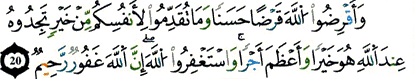 وَأَقْرِضُوا۟ ٱللَّهَ قَرْضًا حَسَنًا ۚ وَمَا تُقَدِّمُوا۟ لِأَنفُسِكُم مِّنْ خَيْرٍ تَجِدُوهُ
عِندَ ٱللَّهِ هُوَ خَيْرًا وَأَعْظَمَ أَجْرًا ۚ وَٱسْتَغْفِرُوا۟ ٱللَّهَ ۖ إِنَّ ٱللَّهَ غَفُورٌ رَّحِيمٌۢ 20